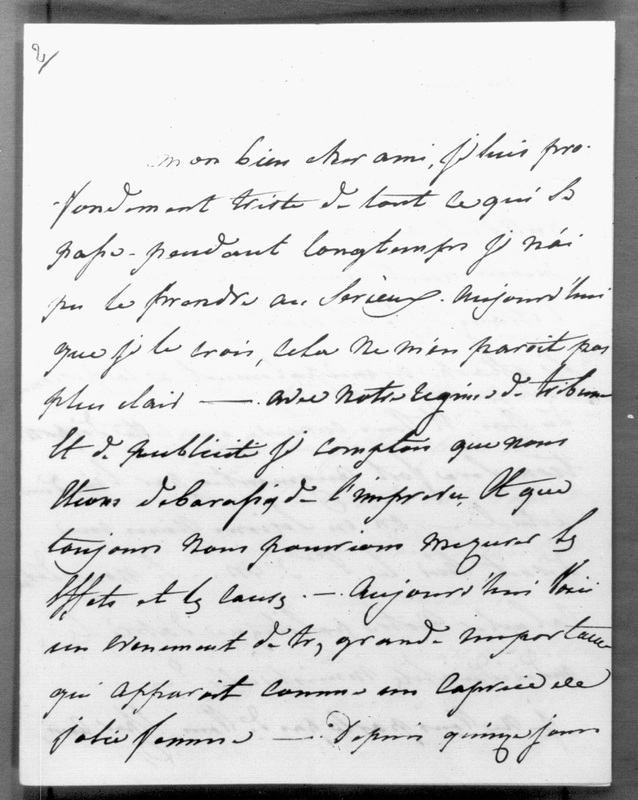 2/
mon bien cher ami, je suis pro-
-fondement triste de tout ce qui se
passe - pendant longtemps je n'ai
pu le prendre au serieux. aujourd'hui
que je le crois, cela ne m'en paroit pas
plus clair —. avec notre regime de tribune
Et de publicité je comptois que nous
Etions debarassés de l'imprevu, Et que
toujours nous pourrions mesurer les
Effets et les causes. — Aujourd'hui Voici
un evenement de très grande importance
qui apparoit comme un caprice de
jolie femme —. Depuis quinze jours